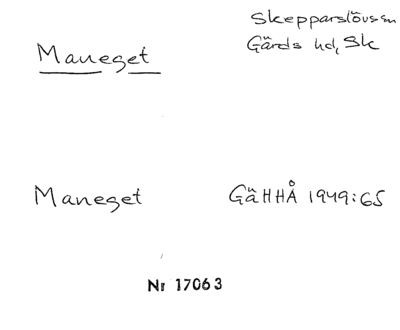 Skepparslövs sn
Maneget
Gärds hd, Sk
Maneget GäHHÅ 1949:65
Nr 17063